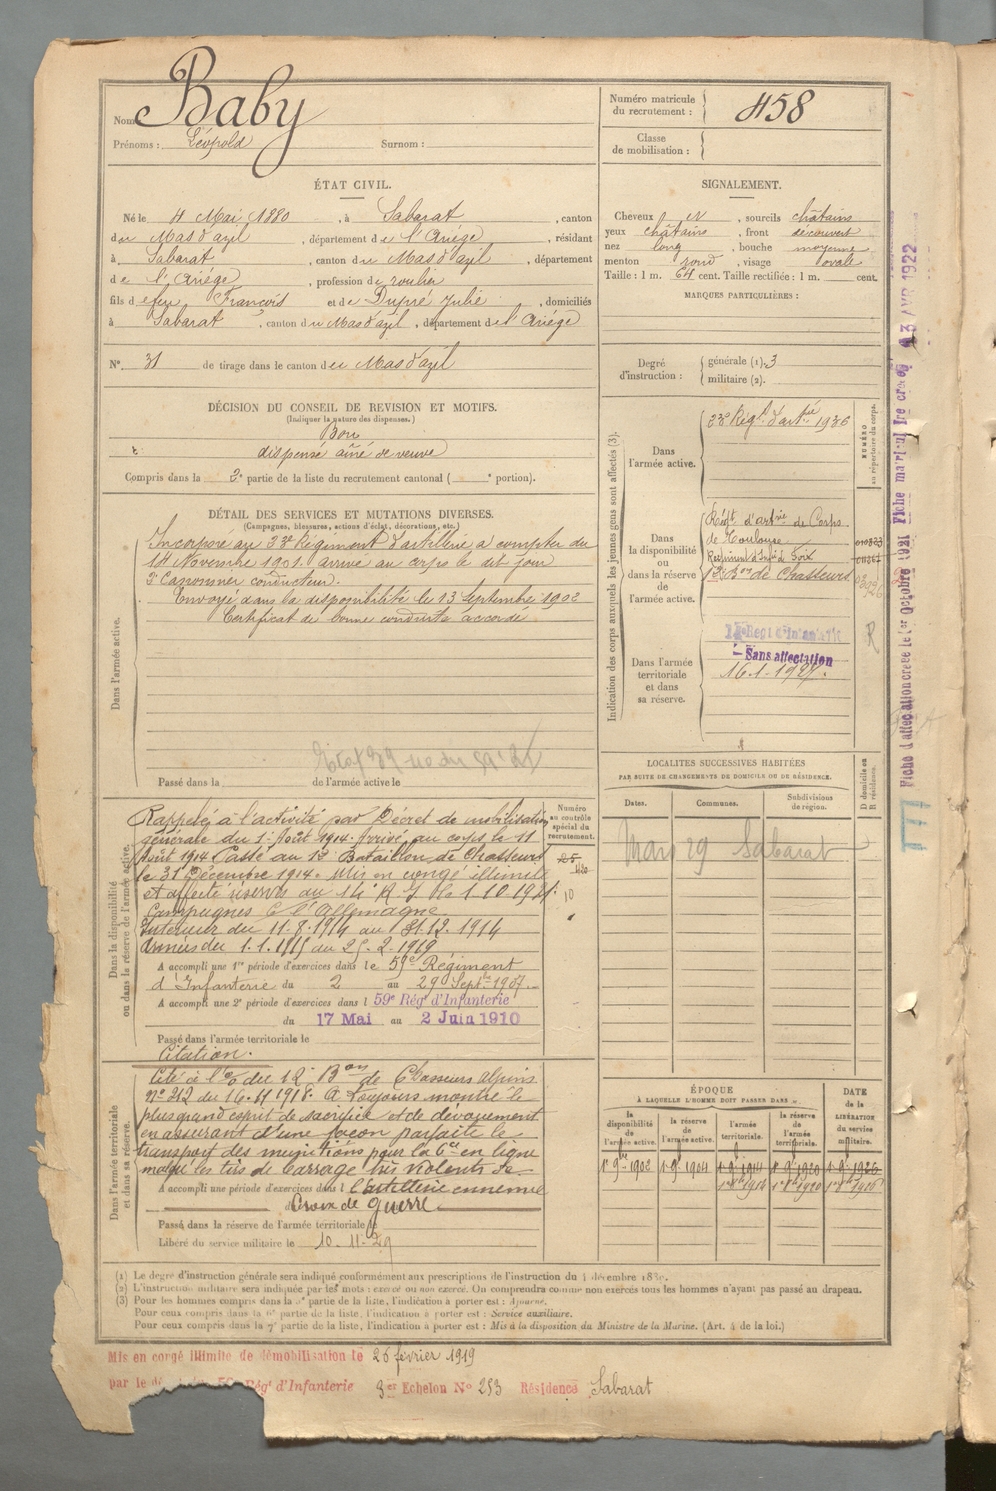 Nom Baby
Prénoms : Léopold Surnom :
Numéro matricule du recrutement : 458
Classe de mobilisation :
ÉTAT CIVIL.
Né le 4 Mai 1880, à Sabarat, canton
du Mas d'azil, département de l'Ariége, résidant
à Sabarat, canton du Mas d'azil, département
de l'Ariége, profession de roulier
fils de feu François et de Dupré Julie, domiciliés
à Sabarat, canton du Mas d'azil, département de l'Ariége
N° 31 de tirage dans le canton du Mas d'azil
SIGNALEMENT.
Cheveux , sourcils châtains
yeux châtains, front découvert
nez long, bouche moyenne
menton rond, visage ovale
Taille : 1 m. 64 cent. Taille rectifiée : 1 m. cent.
MARQUES PARTICULIÈRES :
Degré d'instruction : générale (1). 3
militaire (2).
DÉCISION DU CONSEIL DE REVISION ET MOTIFS.
(Indiquer la nature des dispenses.)
Bon
dispensé aîné de veuve
Compris dans la 2e partie de la liste du recrutement cantonal ( e portion).
DÉTAIL DES SERVICES ET MUTATIONS DIVERSES.
(Campagnes, blessures, actions d'éclat, décorations, etc.)
Dans l'armée active.
Incorporé au 23e Régiment d'artillerie à compter du
14 Novembre 1901. arrivé au corps le dit jour
2e Canonnier conducteur.
Envoyé dans la disponibilité le 13 Septembre 1902
Certificat de bonne conduite accordé
Passé dans la de l'armée active le
Indication des corps auxquels les jeunes gens sont affectés (3).
NUMÉRO au répertoire du corps.
Dans l'armée active.
23e Régt d'artie 1936
Dans la disponibilité ou dans la réserve de l'armée active.
Régt d'artrie de Corps
de Toulouse
Régiment d'Infie de Foix
12e Bon de Chasseurs
Dans l'armée territoriale et dans sa réserve.
Régt d'Infanterie
Sans affectation
R
LOCALITÉS SUCCESSIVES HABITÉES
PAR SUITE DE CHANGEMENTS DE DOMICILE OU DE RÉSIDENCE.
Dates. Communes. Subdivisions de région. D domicile ou R résidence.
Mars 29 Sabarat
Dans la disponibilité ou dans la réserve de l'armée active.
Numéro au contrôle spécial du recrutement.
Rappelé à l'activité par Décret de mobilisation
générale du 1er Août 1914. Arrivé au corps le 11
Août 1914 Passé au 12 Bataillon de Chasseurs
le 31 Décembre 1914. Mis en congé illimité
et affecté réserves au 14e R. I le 1.10.1921.
10
Campagnes C l'Allemagne
Intérieur du 11.8.1914 au 31.12.1914
Armées du 1.1.1915 au 25.2.1919
A accompli une 1re période d'exercices dans le 59e Régiment
d'Infanterie du 2 au 29 Septbre 1907.
A accompli une 2e période d'exercices dans l 59e Rég d'Infanterie
du 17 Mai au 2 Juin 1910
Passé dans l'armée territoriale le
Citation.
Dans l'armée territoriale et dans sa réserve.
Cité à l'O/ du 12e Bon de Chasseurs alpins
n° 212 du A toujours montré le
plus grand esprit de sacrifice et de dévouement
en assurant d'une façon parfaite le
transport des munitions pour la Cie en ligne
malgré les tirs de barrage très violents de
A accompli une période d'exercices dans l l'artillerie ennemie
Croix de guerre.
Passé dans la réserve de l'armée territoriale le
Libéré du service militaire le 10.11.29
ÉPOQUE
À LAQUELLE L'HOMME DOIT PASSER DANS
la disponibilité de l'armée active. la réserve de l'armée active. l'armée territoriale. la réserve de l'armée territoriale.
DATE de la LIBÉRATION du service militaire.
1er 9bre 1902 1er 9bre 1904 1er 9bre 1914 1er 9bre 1920 1er 9bre 1926
1er 8bre 1914 1er 8bre 1920 1er 8bre 1926
(1) Le degré d'instruction générale sera indiqué conformément aux prescriptions de l'instruction du
(2) L'instruction militaire sera indiquée par les mots : exercé ou non exercé. On comprendra comme non exercés tous les hommes n'ayant pas passé au drapeau.
(3) Pour les hommes compris dans la partie de la liste, l'indication à porter est : Ajourné.
Pour ceux compris dans la 6e partie de la liste, l'indication à porter est : Service auxiliaire.
Pour ceux compris dans la 7e partie de la liste, l'indication à porter est : Mis à la disposition du Ministre de la Marine. (Art. 4 de la loi.)
Mis en congé illimité de démobilisation le 26 février 1919
par le Régt d'Infanterie 3er Echelon N° 253 Résidence Sabarat
Fiche d'affectation créée le 1er Octobre 1921 Fiche matricule créée 3 AVR 1922